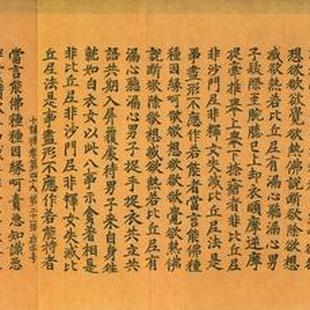 想欲欲欲覺欲熱佛說斷除欲想
滅欲熱若比丘尼有漏心聽漏心男
子髮際至腕膝已上却衣順摩逆摩
捉牽推舉上下捺瘡者非比丘尼
非沙門尼非釋女失滅比丘尼法是
事盡形不應作若能者當言能佛種
種因緣呵欲欲想欲欲欲覺欲熱佛
說斷欲除欲想滅欲熱若比丘尼有
漏心聽漏心男子捉手捉衣共立共
語共期入屏覆處待男子來自身往
就如白衣女以此八事示貪著相是
非比丘尼非沙門尼非釋女失滅比
丘尼法是事盡形不應作若能將者
當言能佛種種因緣呵責惡知識惡